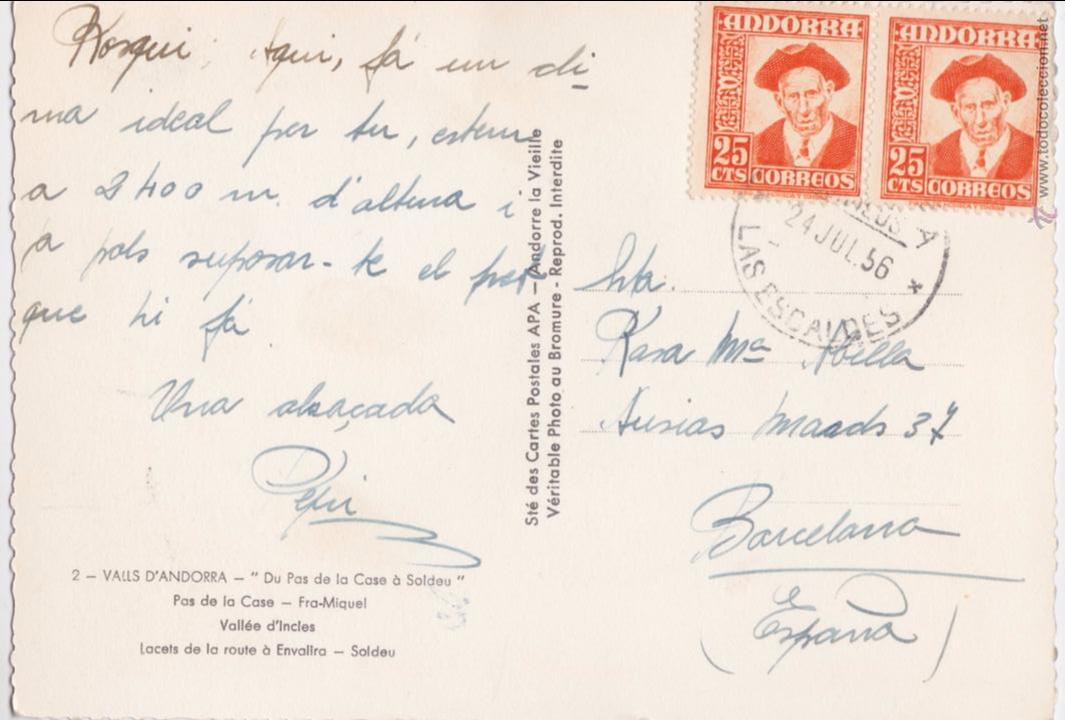 Rosqui; Aqui, fá un cli
ma ideal per tu, estem
a 2400 m. d'altura i
ja pots suposar-te el fret
que hi fá
Una abraçada
Pepin
2 – VALLS D'ANDORRA – " Du Pas de la Case à Soldeu "
Pas de la Case – Fra-Miquel
Vallée d'Incles
Lacets de la route à Envalira – Soldeu
Sté des Cartes Postales APA – Andorre la Vieille
Véritable Photo au Bromure - Reprod. Interdite
ANDORRA
25
CTS CORREOS
ANDORRA
25
CTS CORREOS
24 JUL. 56
LAS ESCALDES
Srta.
Rosa Mª Abella
Ausias March 37
Barcelona
(España)
www.todocoleccion.net